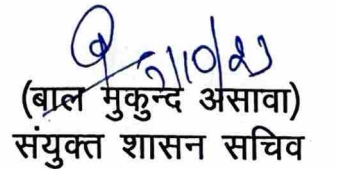 /10/23
(बाल मुकुन्द असावा)
संयुक्त शासन सचिव